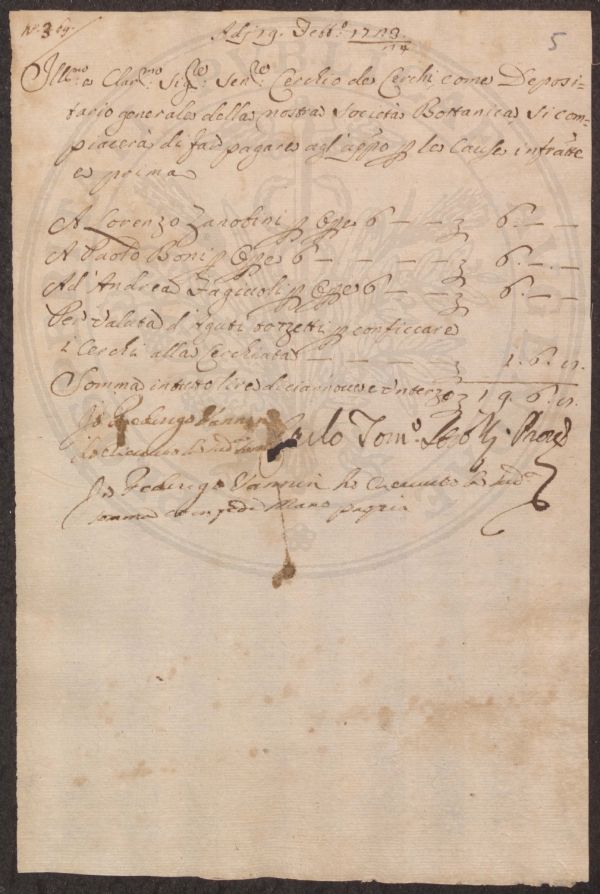 N.º 3
Adj 19. Febb.º 1723/24
5
Ill.mo e Clar.mo Sig.re Sen.re Cerchio de Cerchi, come Deposi-
tario generale della nostra Società Bottanica, si com-
piacerà di far pagare agl'app.o p le Cause infratte
e prima
A Lorenzo Zanobini p Op.e 6 — — 6. — —
A Paolo Boni p Op.e 6 — — — 6. — —
Ad'Andrea Fagiuoli p Op.e 6 — — 6. — —
Per valuta d'Aguti p conficcare
i Cerchi alla Cerchiata — — — 1. 6. 8.
Somma in tutto lire diciannove e un terzo 19. 6. 8.
Io Federigo Vannini
ho ricevuto
Tom.º Prov.e
Io Federigo Vannini ho ricevuto la sud.a
somma et in fede Mano propria